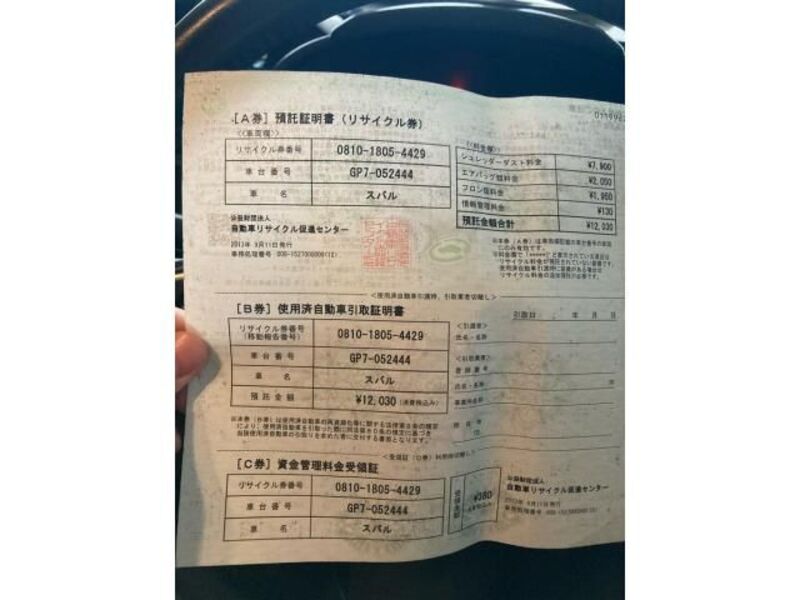 [A券] 預託証明書(リサイクル券)
<<車両欄>>
リサイクル券番号 0810-1805-4429
車台番号 GP7-052444
車名 スバル
<<料金欄>>
シュレッダーダスト料金 ¥7,900
エアバッグ類料金 ¥2,050
フロン類料金 ¥1,950
情報管理料金 ¥130
預託金額合計 ¥12,030
公益財団法人
自動車リサイクル促進センター
2012年 9月11日発行
<使用済自動車引渡時、引取業者切離し>
[B券] 使用済自動車引取証明書
リサイクル券番号
(移動報告番号) 0810-1805-4429
車台番号 GP7-052444
車名 スバル
預託金額 ¥12,030 (消費税込み)
引取日 年 月 日
<引渡者>
氏名・名称
<引取業者>
登録番号
氏名・名称
事業所名称
<受領証(C券)利用時切離し>
[C券] 資金管理料金受領証
リサイクル券番号 0810-1805-4429
車台番号 GP7-052444
車名 スバル
受領金額 ¥380
公益財団法人
自動車リサイクル促進センター
2012年 9月11日発行